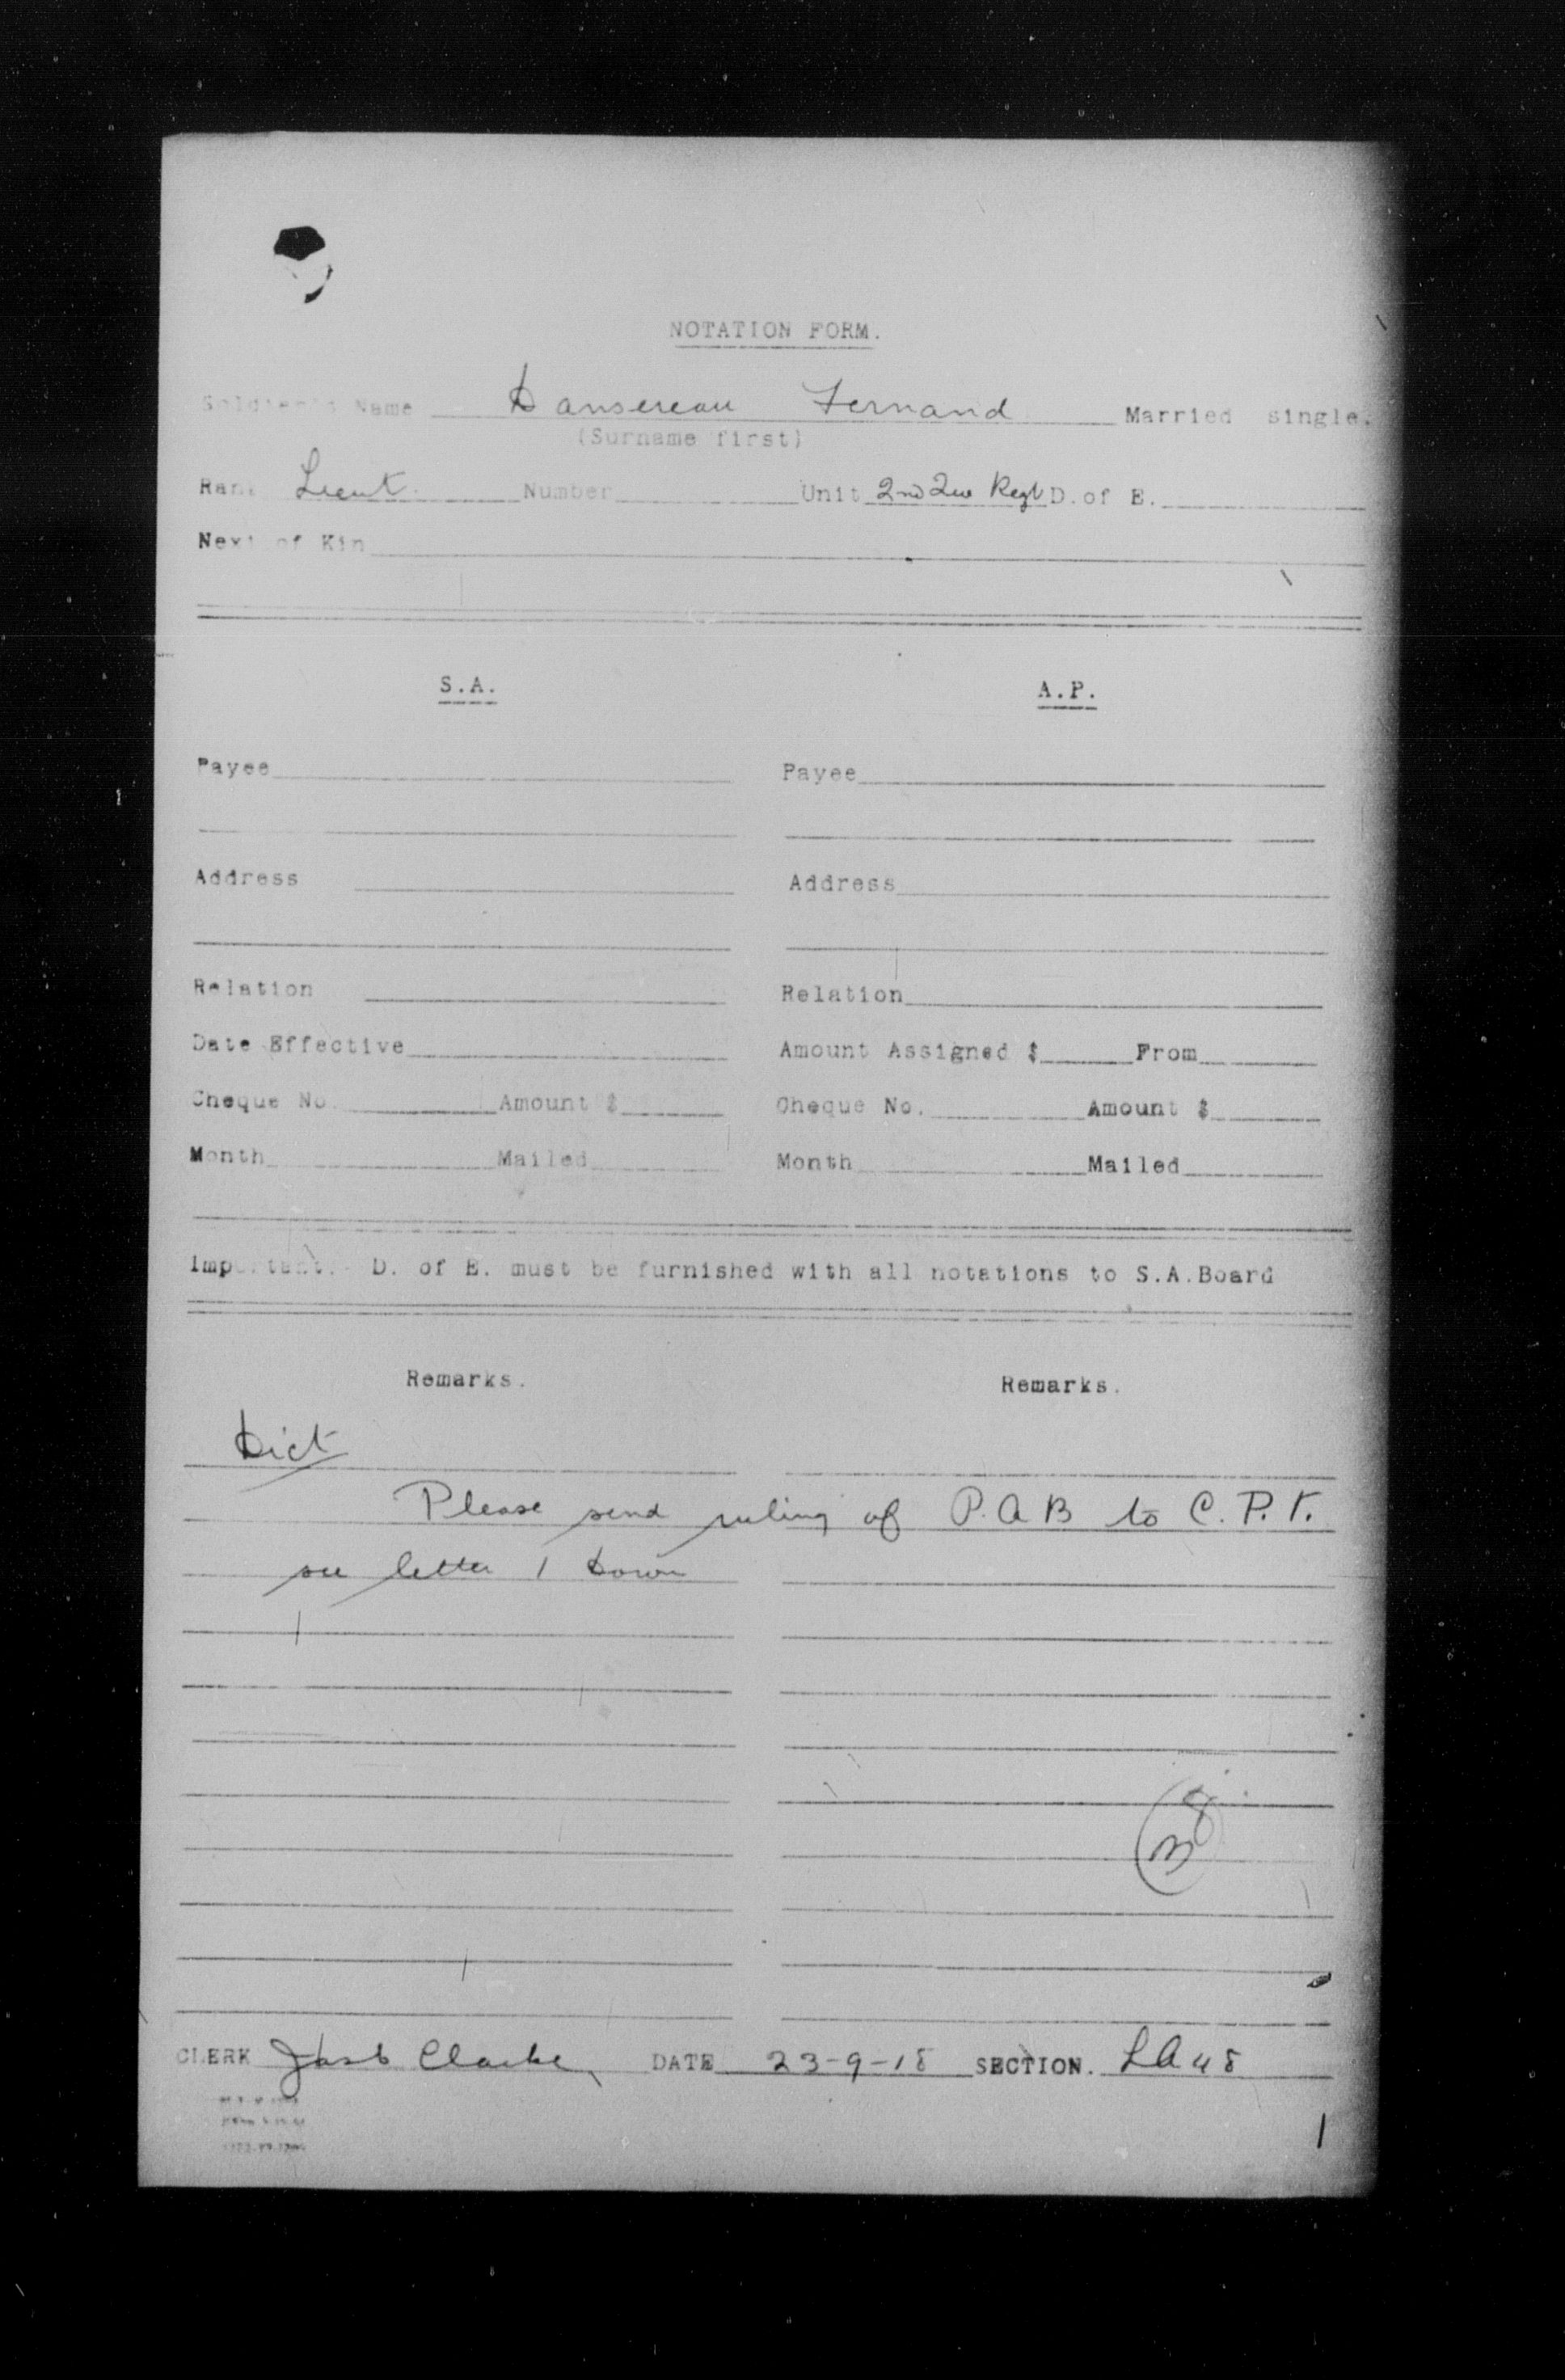 NOTATION FORM.
Soldier's Name Dansereau Fernand Married single.
(Surname first)
Rank Lieut. Number Unit 2nd Que Regt D. of E.
Next of Kin
S.A. A.P.
Payee Payee
Address Address
Relation Relation
Date Effective Amount Assigned $ From
Cheque No. Amount $ Cheque No. Amount $
Month Mailed Month Mailed
Important.- D. of E. must be furnished with all notations to S.A.Board
Remarks. Remarks.
Dict
Please send ruling of P.A B to C.P.F.
see letter 1 Down
CLERK Clarke DATE 23-9-18 SECTION. LA 48
1